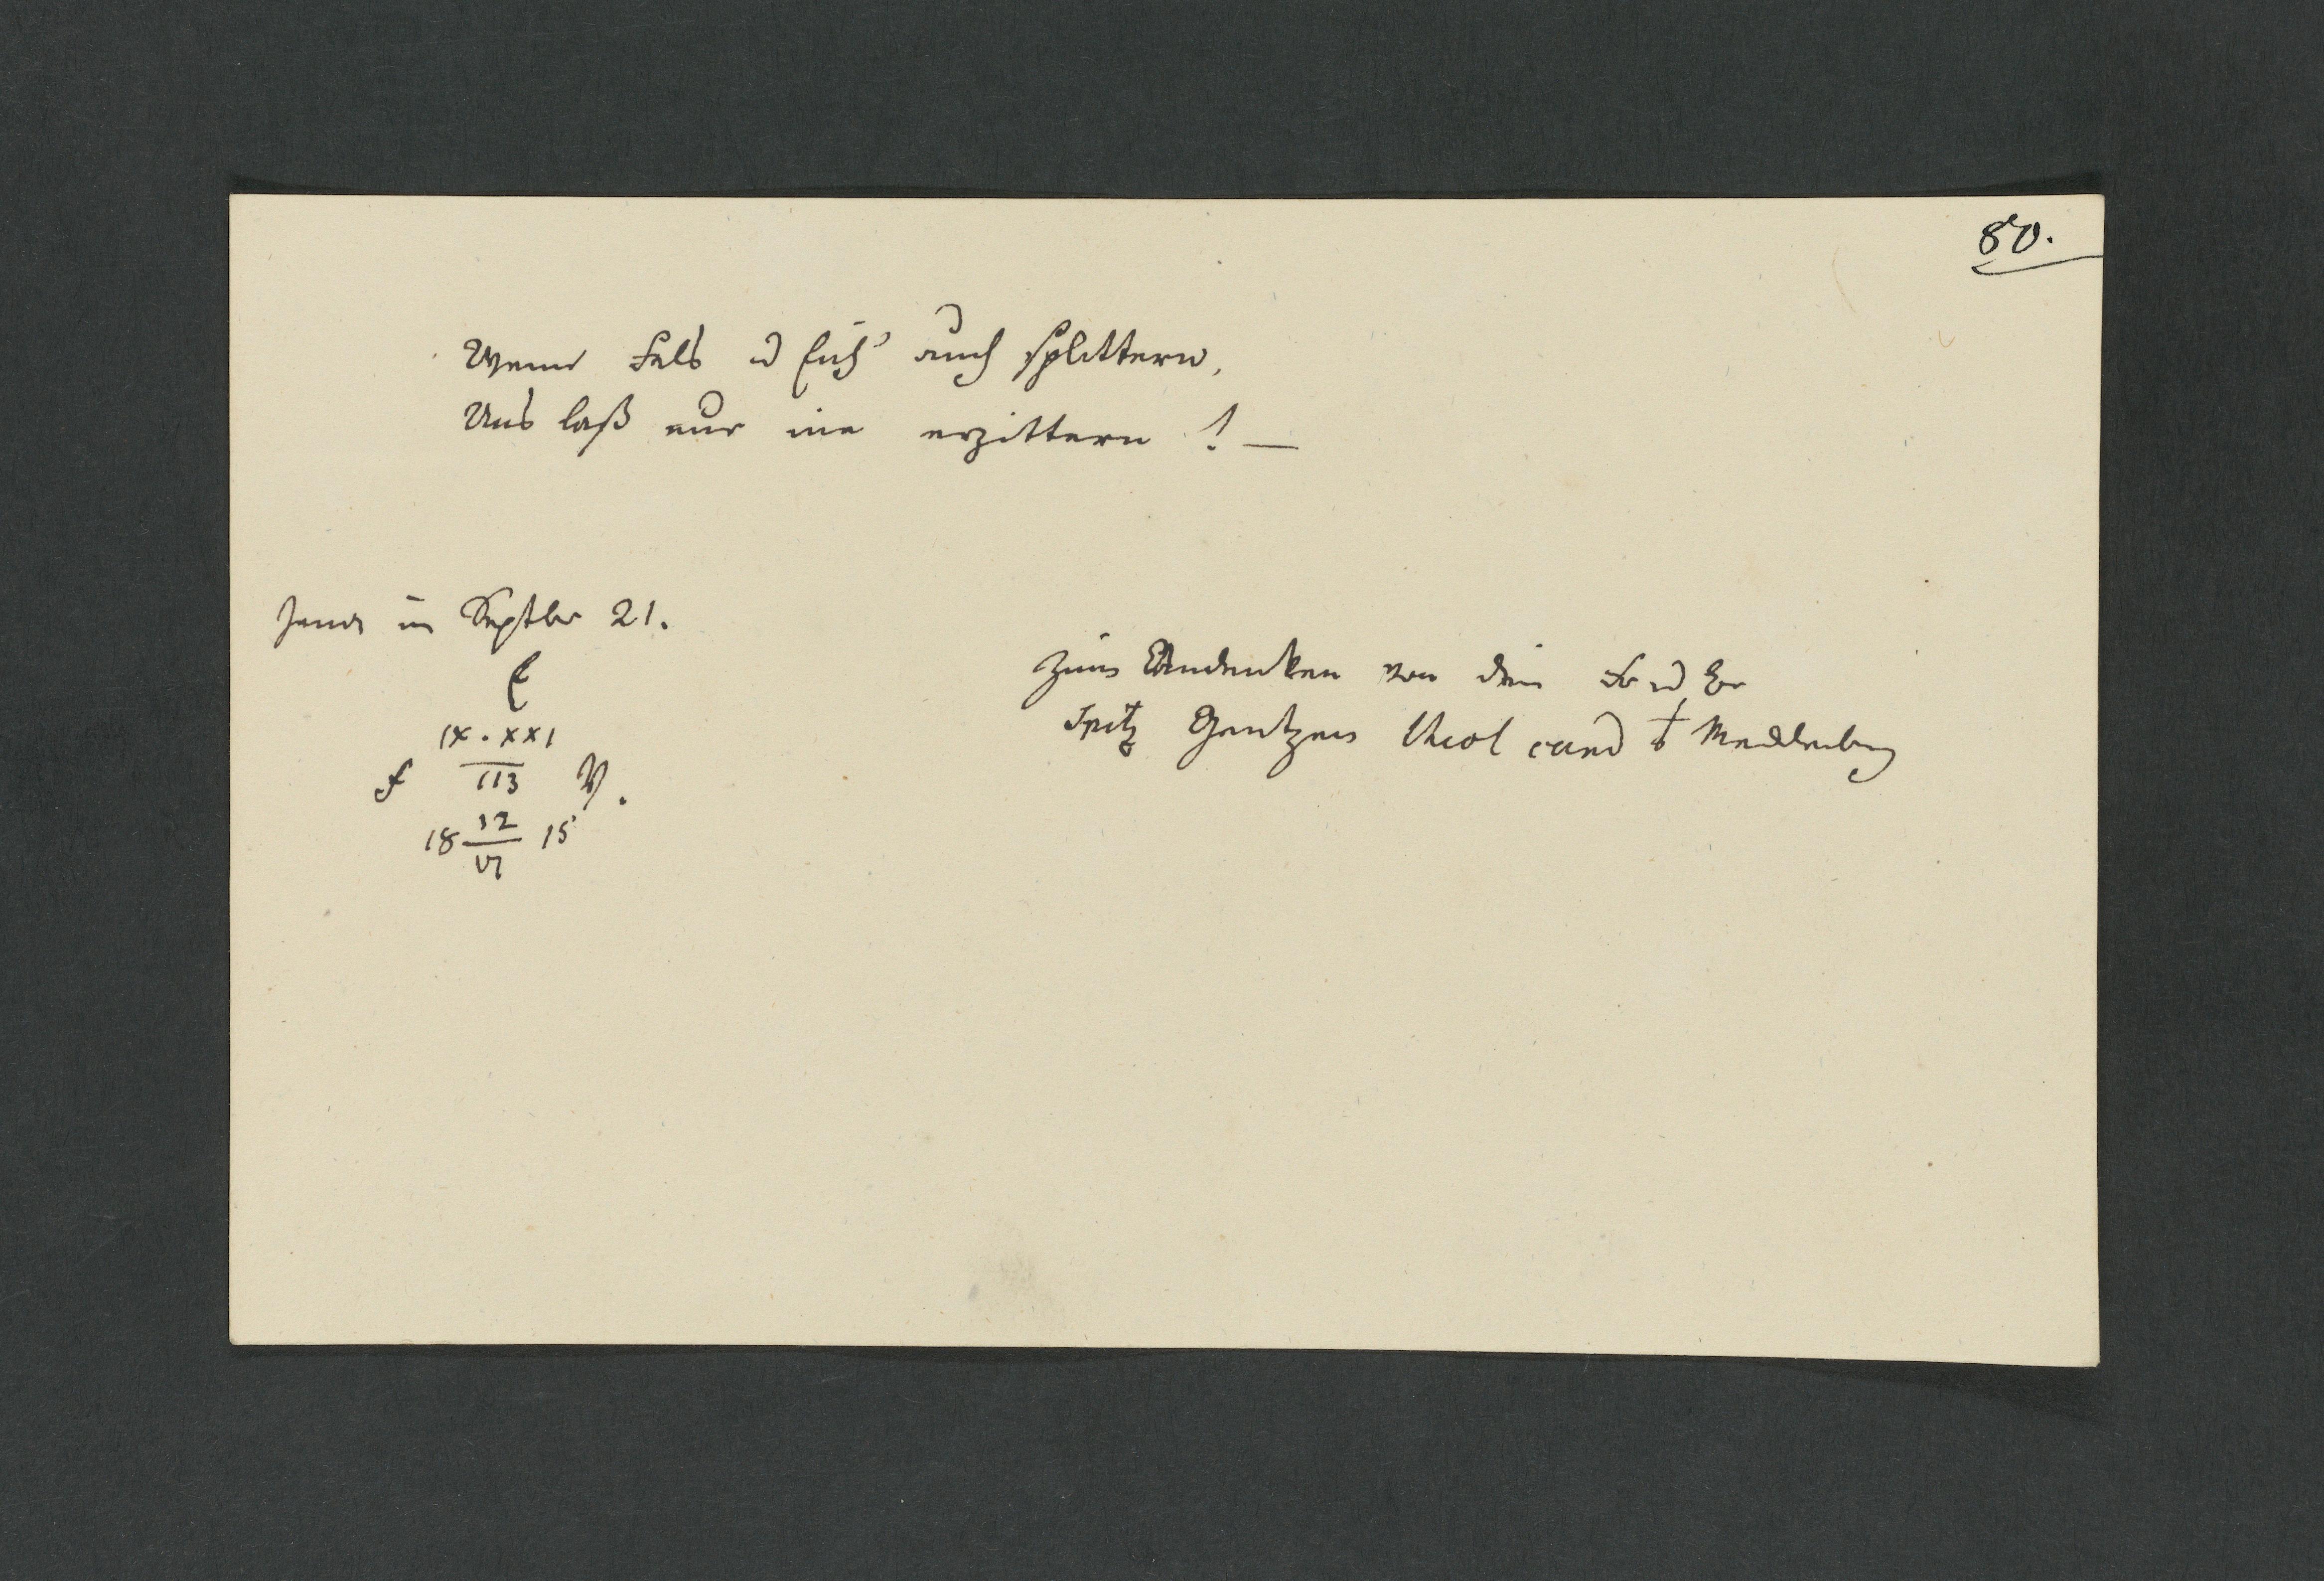 80.
Wenn Fels u Eich' auch splittern,
Uns laß nur nie erzittern! —
Jena im Septbr 21.
E
IX. XXI
F 113 V.
18 12 15
VI
Zum Andenken von dein Fr u Br
Fritz Gentzen theol cand Mecklenburg